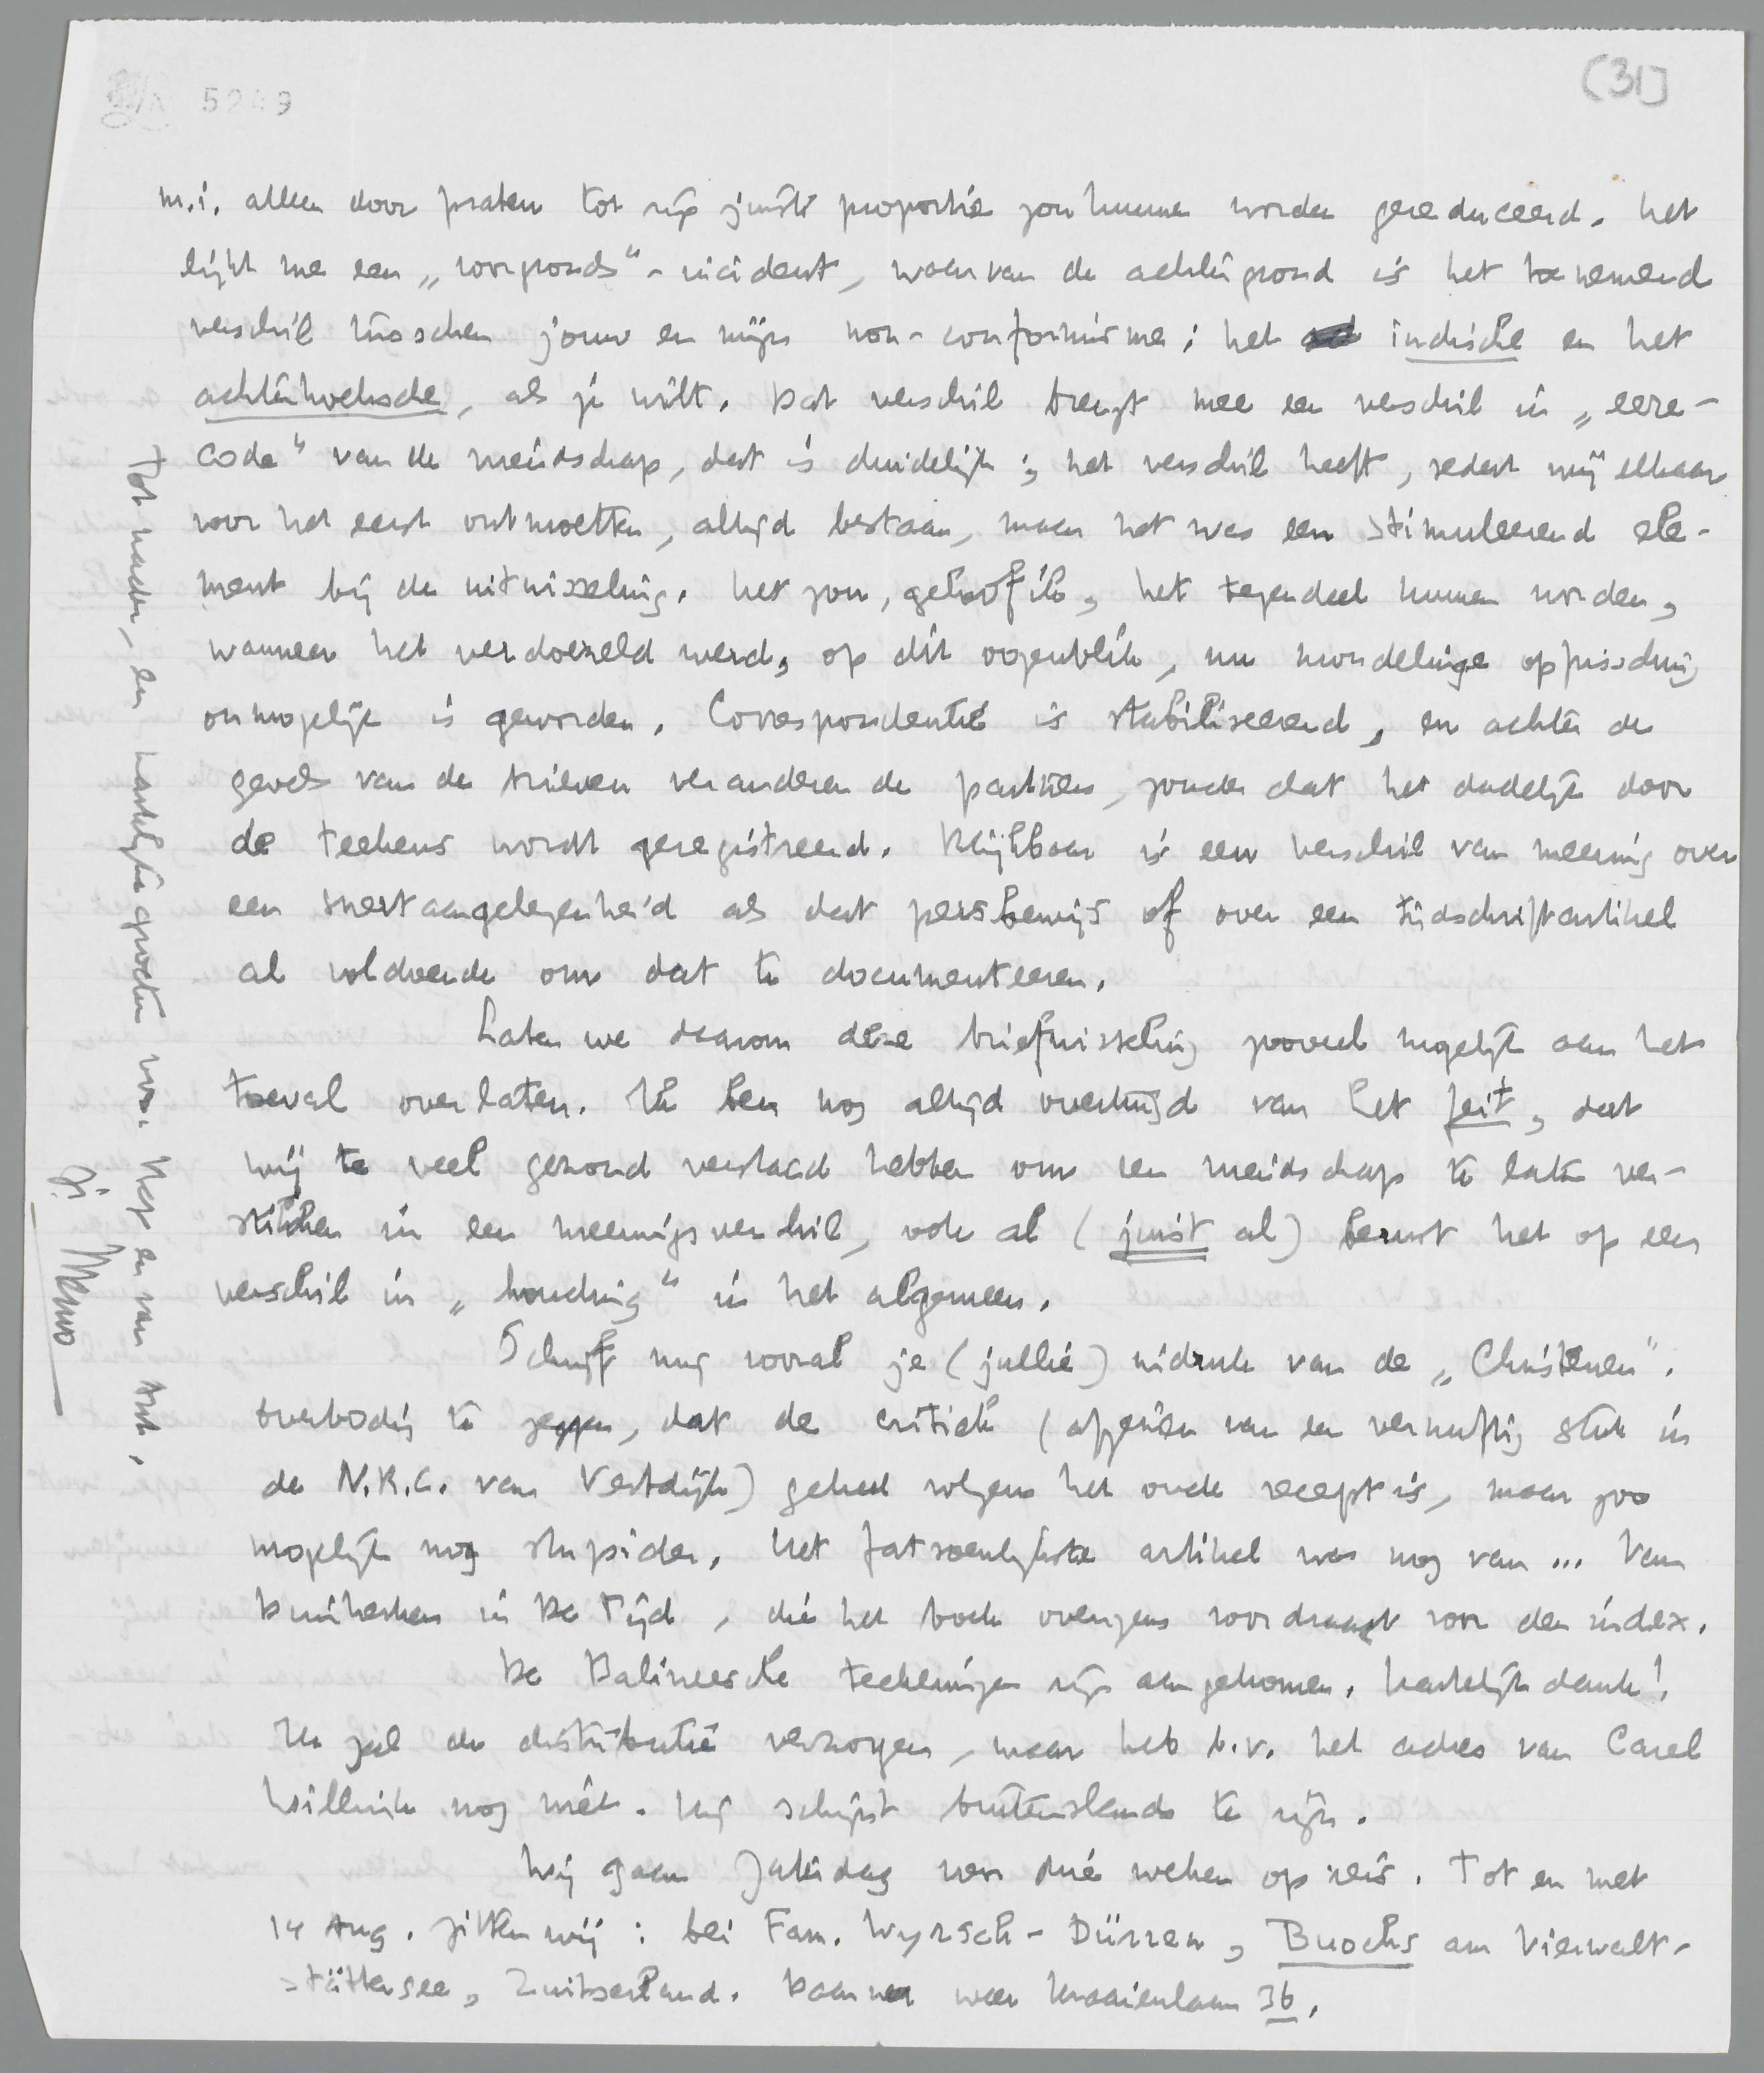 5249
[31]
m.i. alleen door praten tot zijn juiste proportie zou kunnen worden gereduceerd. Het
lijkt me een „voorgronds"-incident, waarvan de achtergrond is het toenemend
verschil tusschen jouw en mijn non-conformisme: het indische en het
achterhoeksche, als je wilt. Dat verschil brengt mee een verschil in „eere-
code" van de vriendschap, dat is duidelijk; het verschil heeft, sedert wij elkaar
voor het eerst ontmoetten, altijd bestaan, maar het was een stimuleerend ele-
ment bij de uitwisseling. Het zou, geloof ik, het tegendeel kunnen worden,
wanneer het verdoezeld werd, op dit oogenblik, nu mondelinge opfrissching
onmogelijk is geworden. Correspondentie is stabiliseerend, en achter de
gevels van de brieven veranderen de partijen, zonder dat het dadelijk door
de teekens wordt geregistreerd. Blijkbaar is een verschil van meening over
een snertaangelegenheid als dat persbewijs of over een tijdschriftartikel
al voldoende om dat te documenteeren.
Laten we daarom deze briefwisseling zooveel mogelijk aan het
toeval overlaten. Ik ben nog altijd overtuigd van het feit, dat
wij te veel gezond verstand hebben om een vriendschap te laten ver-
stikken in een meeningsverschil, ook al (juist al) berust het op een
verschil in „houding" in het algemeen.
Schrijf mij vooral je (jullie) indruk van de „Christenen".
Overbodig te zeggen, dat de critiek (afgezien van een vernuftig stuk in
de N.R.C. van Vestdijk) geheel volgens het oude recept is, maar zoo
mogelijk nog stupider. Het fatsoenlijkste artikel was nog van ... Van
Duinkerken in De Tijd, die het boek overigens voordraagt voor den index.
De Balineesche teekeningen zijn aangekomen. Hartelijk dank!
Ik zal de distributie verzorgen, maar heb b.v. het adres van Carel
Willink nog niet. Hij schijnt buitenslands te zijn.
Wij gaan Zaterdag voor drie weken op reis. Tot en met
14 Aug. zitten wij: bei Fam. Wyrsch-Dürren, Buochs am Vierwalt-
stättersee, Zwitserland. Daarna weer Kraaienlaan 36.
Tot nader, en hartelijke groeten v.o.n. Krap en van Ant.
je Menno